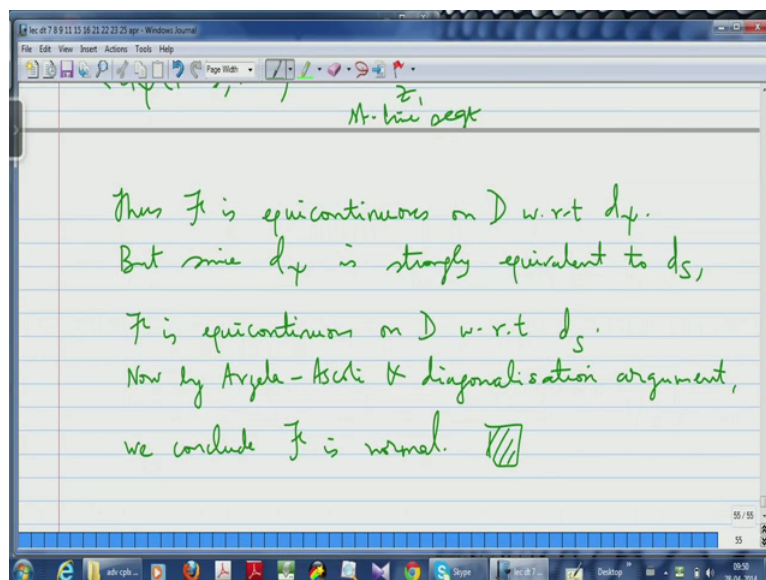 lec dt 7 8 9 11 15 16 21 22 23 25 apr - Windows Journal
File Edit View Insert Actions Tools Help
Page Width
z₁
st-line segt
Thus ℱ is equicontinuous on D w.r.t d_ψ.
But since d_ψ is strongly equivalent to d_S,
ℱ is equicontinuous on D w.r.t d_S.
Now by Arzela-Ascoli & diagonalisation argument,
we conclude ℱ is normal.
55 / 55
55
adv cplx ...
Skype
lec dt 7 ...
Desktop
09:50